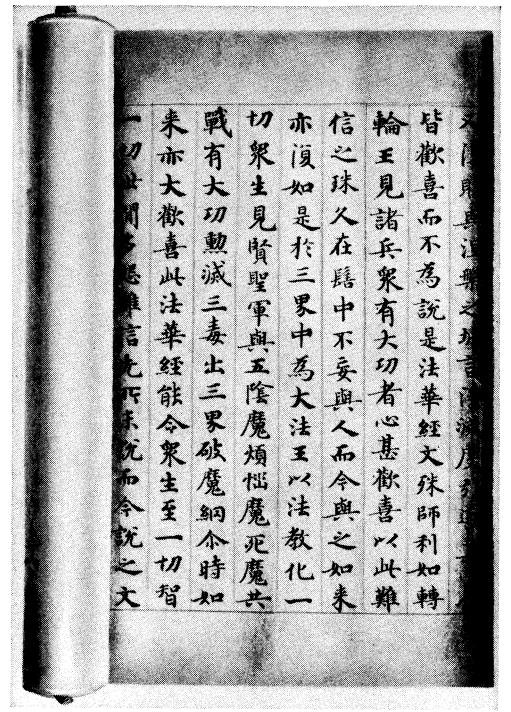 又復賜與涅槃之城言得滅度引
皆歡喜而不為說是法華經文殊師利如轉
輪王見諸兵衆有大功者心甚歡喜以此難
信之珠久在髻中不妄與人而今與之如来
亦復如是於三界中為大法王以法教化一
切衆生見賢聖軍與五陰魔煩惱魔死魔共
戰有大功勲滅三毒出三界破魔網尒時如
来亦大歡喜此法華經能令衆生至一切智
一切世間多怨難信先所未說而今說之文